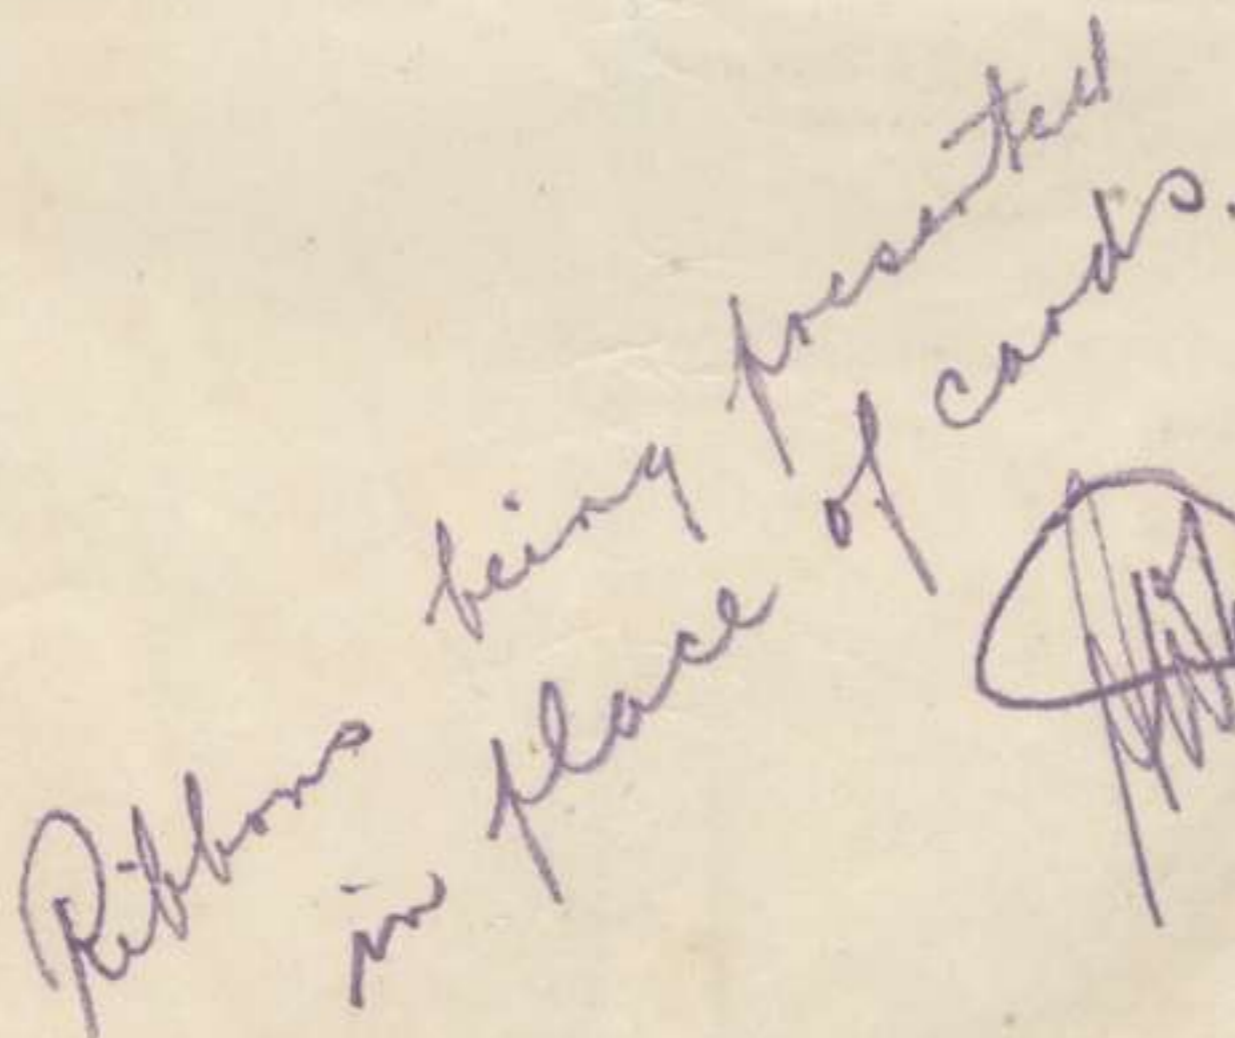 Ribbons being presented
in place of cards.